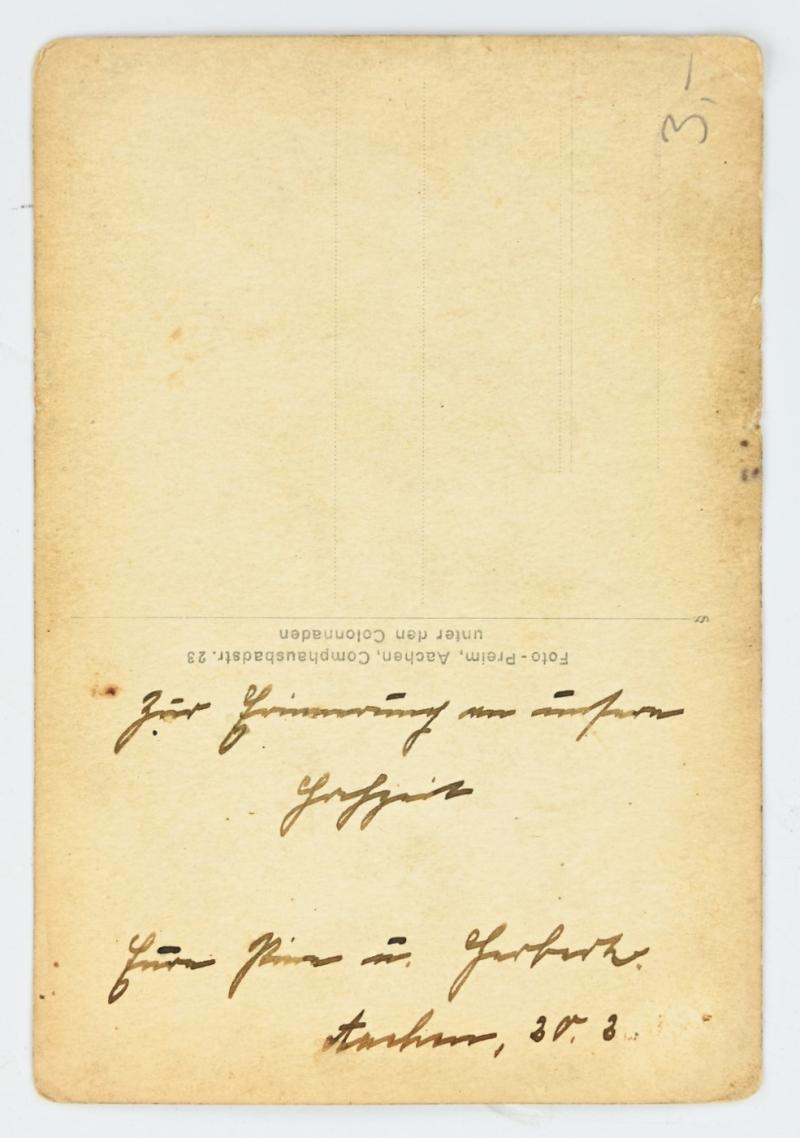 3,-
Foto-Preim, Aachen, Comphausbadstr. 23
unter den Colonnaden
Zur Erinnerung an unsere
Hochzeit
Eure u. Herbert.
Aachen, 30. 3.